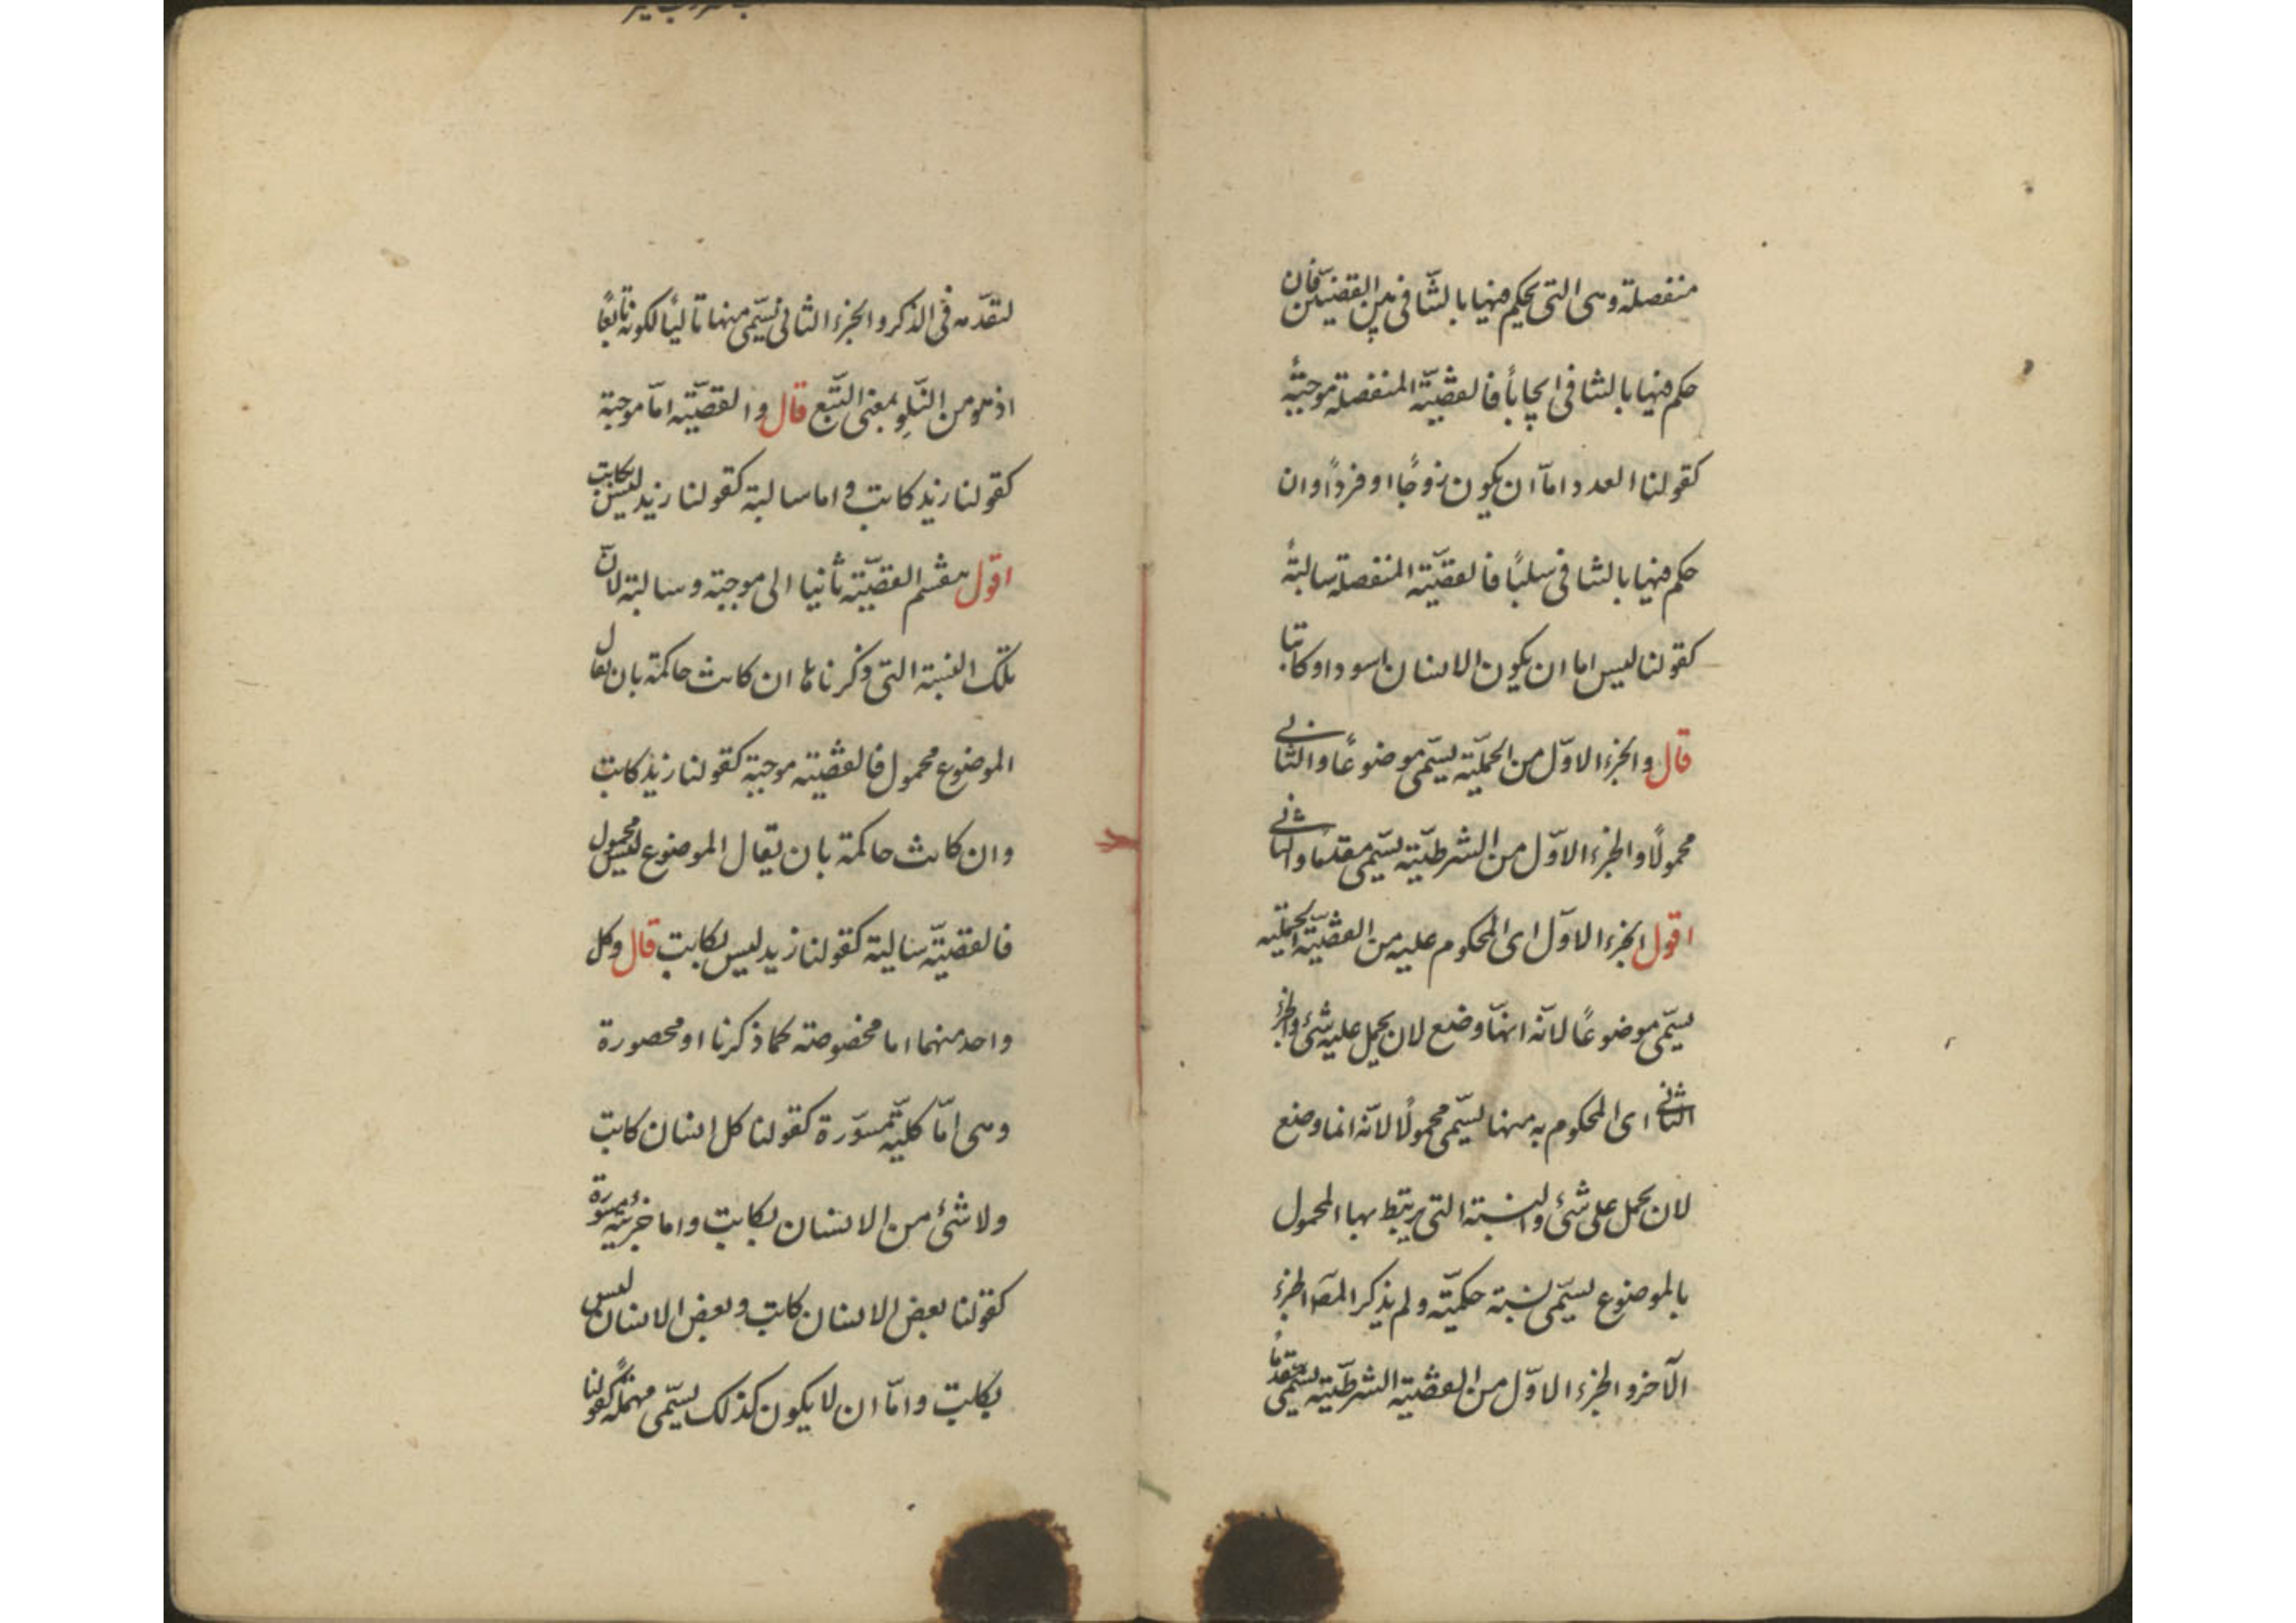 منفصلة وهى التى يحكم فيها بالتنافى بين القضيتين فان
حكم فيها بالتنافى ايجاباً فالقضيّة المنفصلة موجبةٌ
كقولنا العدد امّا ان يكون زوجًا او فردًا وان
حكم فيها بالتنافى سلبًا فالقضيّة المنفصلة سالبةٌ
كقولنا ليس اما ان يكون الانسان اسود او كاتبا
قال والجزء الاوّل من الحمليّة يسمّى موضوعًا والثانى
محمولًا والجزء الاوّل من الشرطيّة يسمّى مقدمًا والثانى
اقول الجزء الاوّل اى المحكوم عليه من القضيّة الحمليّة
يسمّى موضوعًا لانّه انّما وضع لان يحمل عليه شئ والجزء
الثانى اى المحكوم به منها يسمّى محمولًا لانّه انما وضع
لان يحمل على شئ والنسبة التى يرتبط بها المحمول
بالموضوع يسمّى نسبة حكميّة ولم يذكر المصّ الجزء
الآخر والجزء الاوّل من القضيّة الشرطيّة يسمّى مقدمًا
لتقدّمه فى الذكر والجزء الثانى يسمّى منها تاليًا لكونه تابعًا
اذ هو من التِلو بمعنى التبّع قال والقضيّة امّا موجبة
كقولنا زيد كاتب واما سالبة كقولنا زيد ليس بكاتب
اقول ينقسم القضيّة ثانيا الى موجبة وسالبة لانّ
تلك النسبة التى ذكرناها ان كانت حاكمة بان يقال
الموضوع محمول فالقضيّة موجبة كقولنا زيد كاتب
وان كانت حاكمة بان يقال الموضوع ليس محمول
فالقضيّة سالبة كقولنا زيد ليس بكاتب قال وكل
واحد منهما اما مخصوصة كما ذكرنا او محصورة
وهى امّا كليّة مسوّرة كقولنا كل انسان كاتب
ولا شئ من الانسان بكاتب واما جزئيّة مسوّرة
كقولنا بعض الانسان كاتب وبعض الانسان ليس
بكاتب وامّا ان لا يكون كذلك يسمّى مهملةً كقولنا